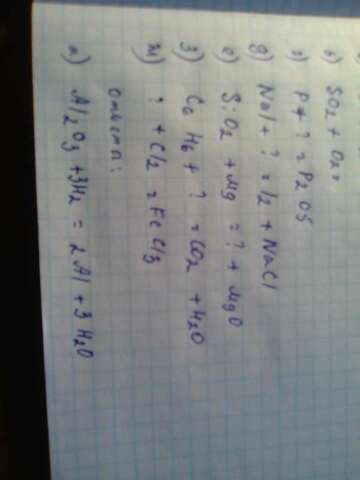 в) SO2 + O2 =
г) P + ? = P2O5
д) NaI + ? = I2 + NaCl
е) SiO2 + Mg = ? + MgO
з) C6H6 + ? = CO2 + H2O
и) ? + Cl2 = FeCl3
ответы:
а) Al2O3 + 3H2 = 2Al + 3H2O